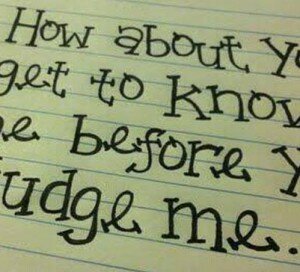 How about yo
get to know
e before y
udge me.